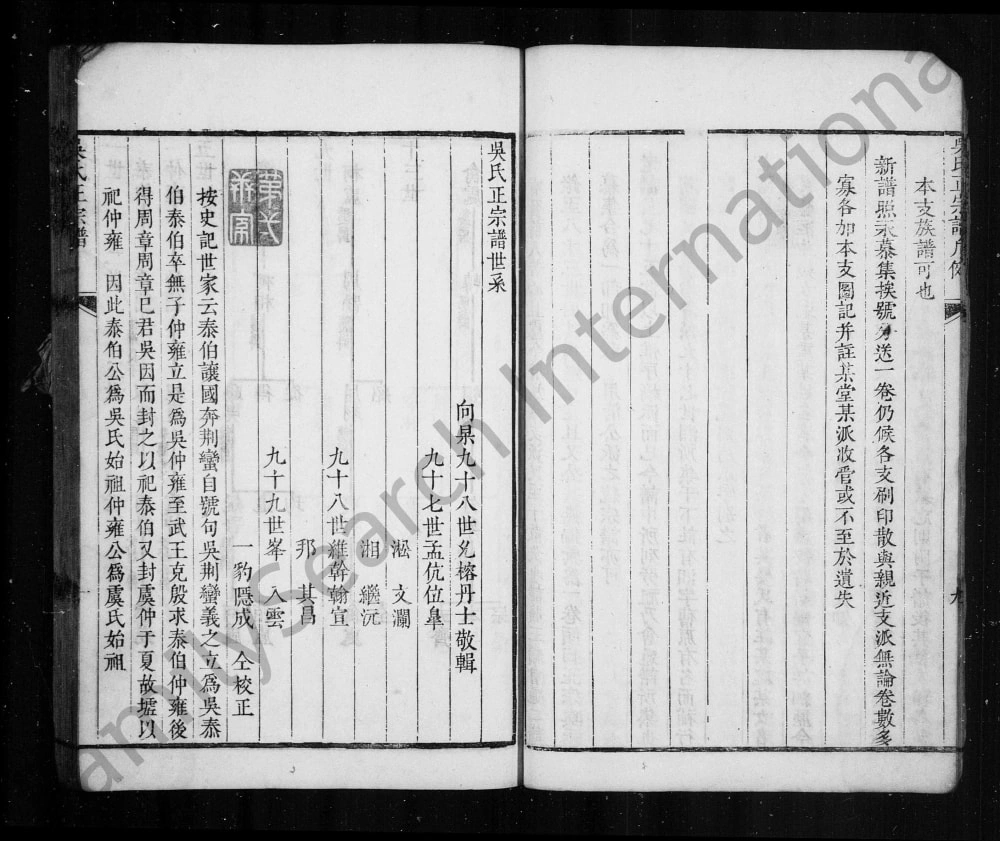 吳氏正宗譜凡例
本支族譜可也
新譜照永慕集挨號分送一卷仍候各支刷印散與親近支派無論卷數多
寡各加本支圖記并註某堂某派收管或不至於遺失
九
吳氏正宗譜世系
向杲九十八世允榕丹士敬輯
九十七世孟伉位皐
淞 文瀾
湘 繼沅
九十八世維幹翰宣
邦 其昌
九十九世峯 入雲
一豹隱成 仝校正
按史記世家云泰伯讓國奔荆蠻自號句吳荆蠻義之立爲吳泰
伯泰伯卒無子仲雍立是爲吳仲雍至武王克殷求泰伯仲雍後
得周章周章已君吳因而封之以祀泰伯又封虞仲于夏故墟以
祀仲雍 因此泰伯公爲吳氏始祖仲雍公爲虞氏始祖
吳氏正宗譜
一
FamilySearch International